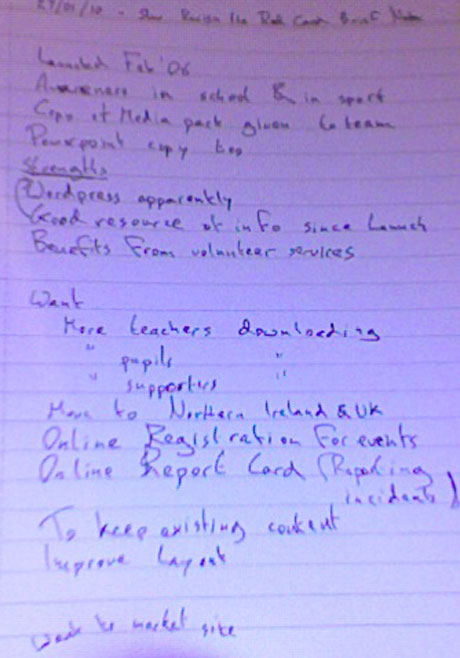 27/01/10 - Show Racism the Red Card Brief Notes
Launched Feb '06
Awareness in school & in sport
Copy of Media pack given to team
Powerpoint copy too
Strengths
Wordpress apparently
Good resource of info since launch
Benefits from volunteer services
Want
More teachers downloading
" pupils "
" supporters "
Move to Northern Ireland & UK
Online Registration for events
Online Report Card (Reporting
incidents)
To keep existing content
Improve Layout
Want to market site